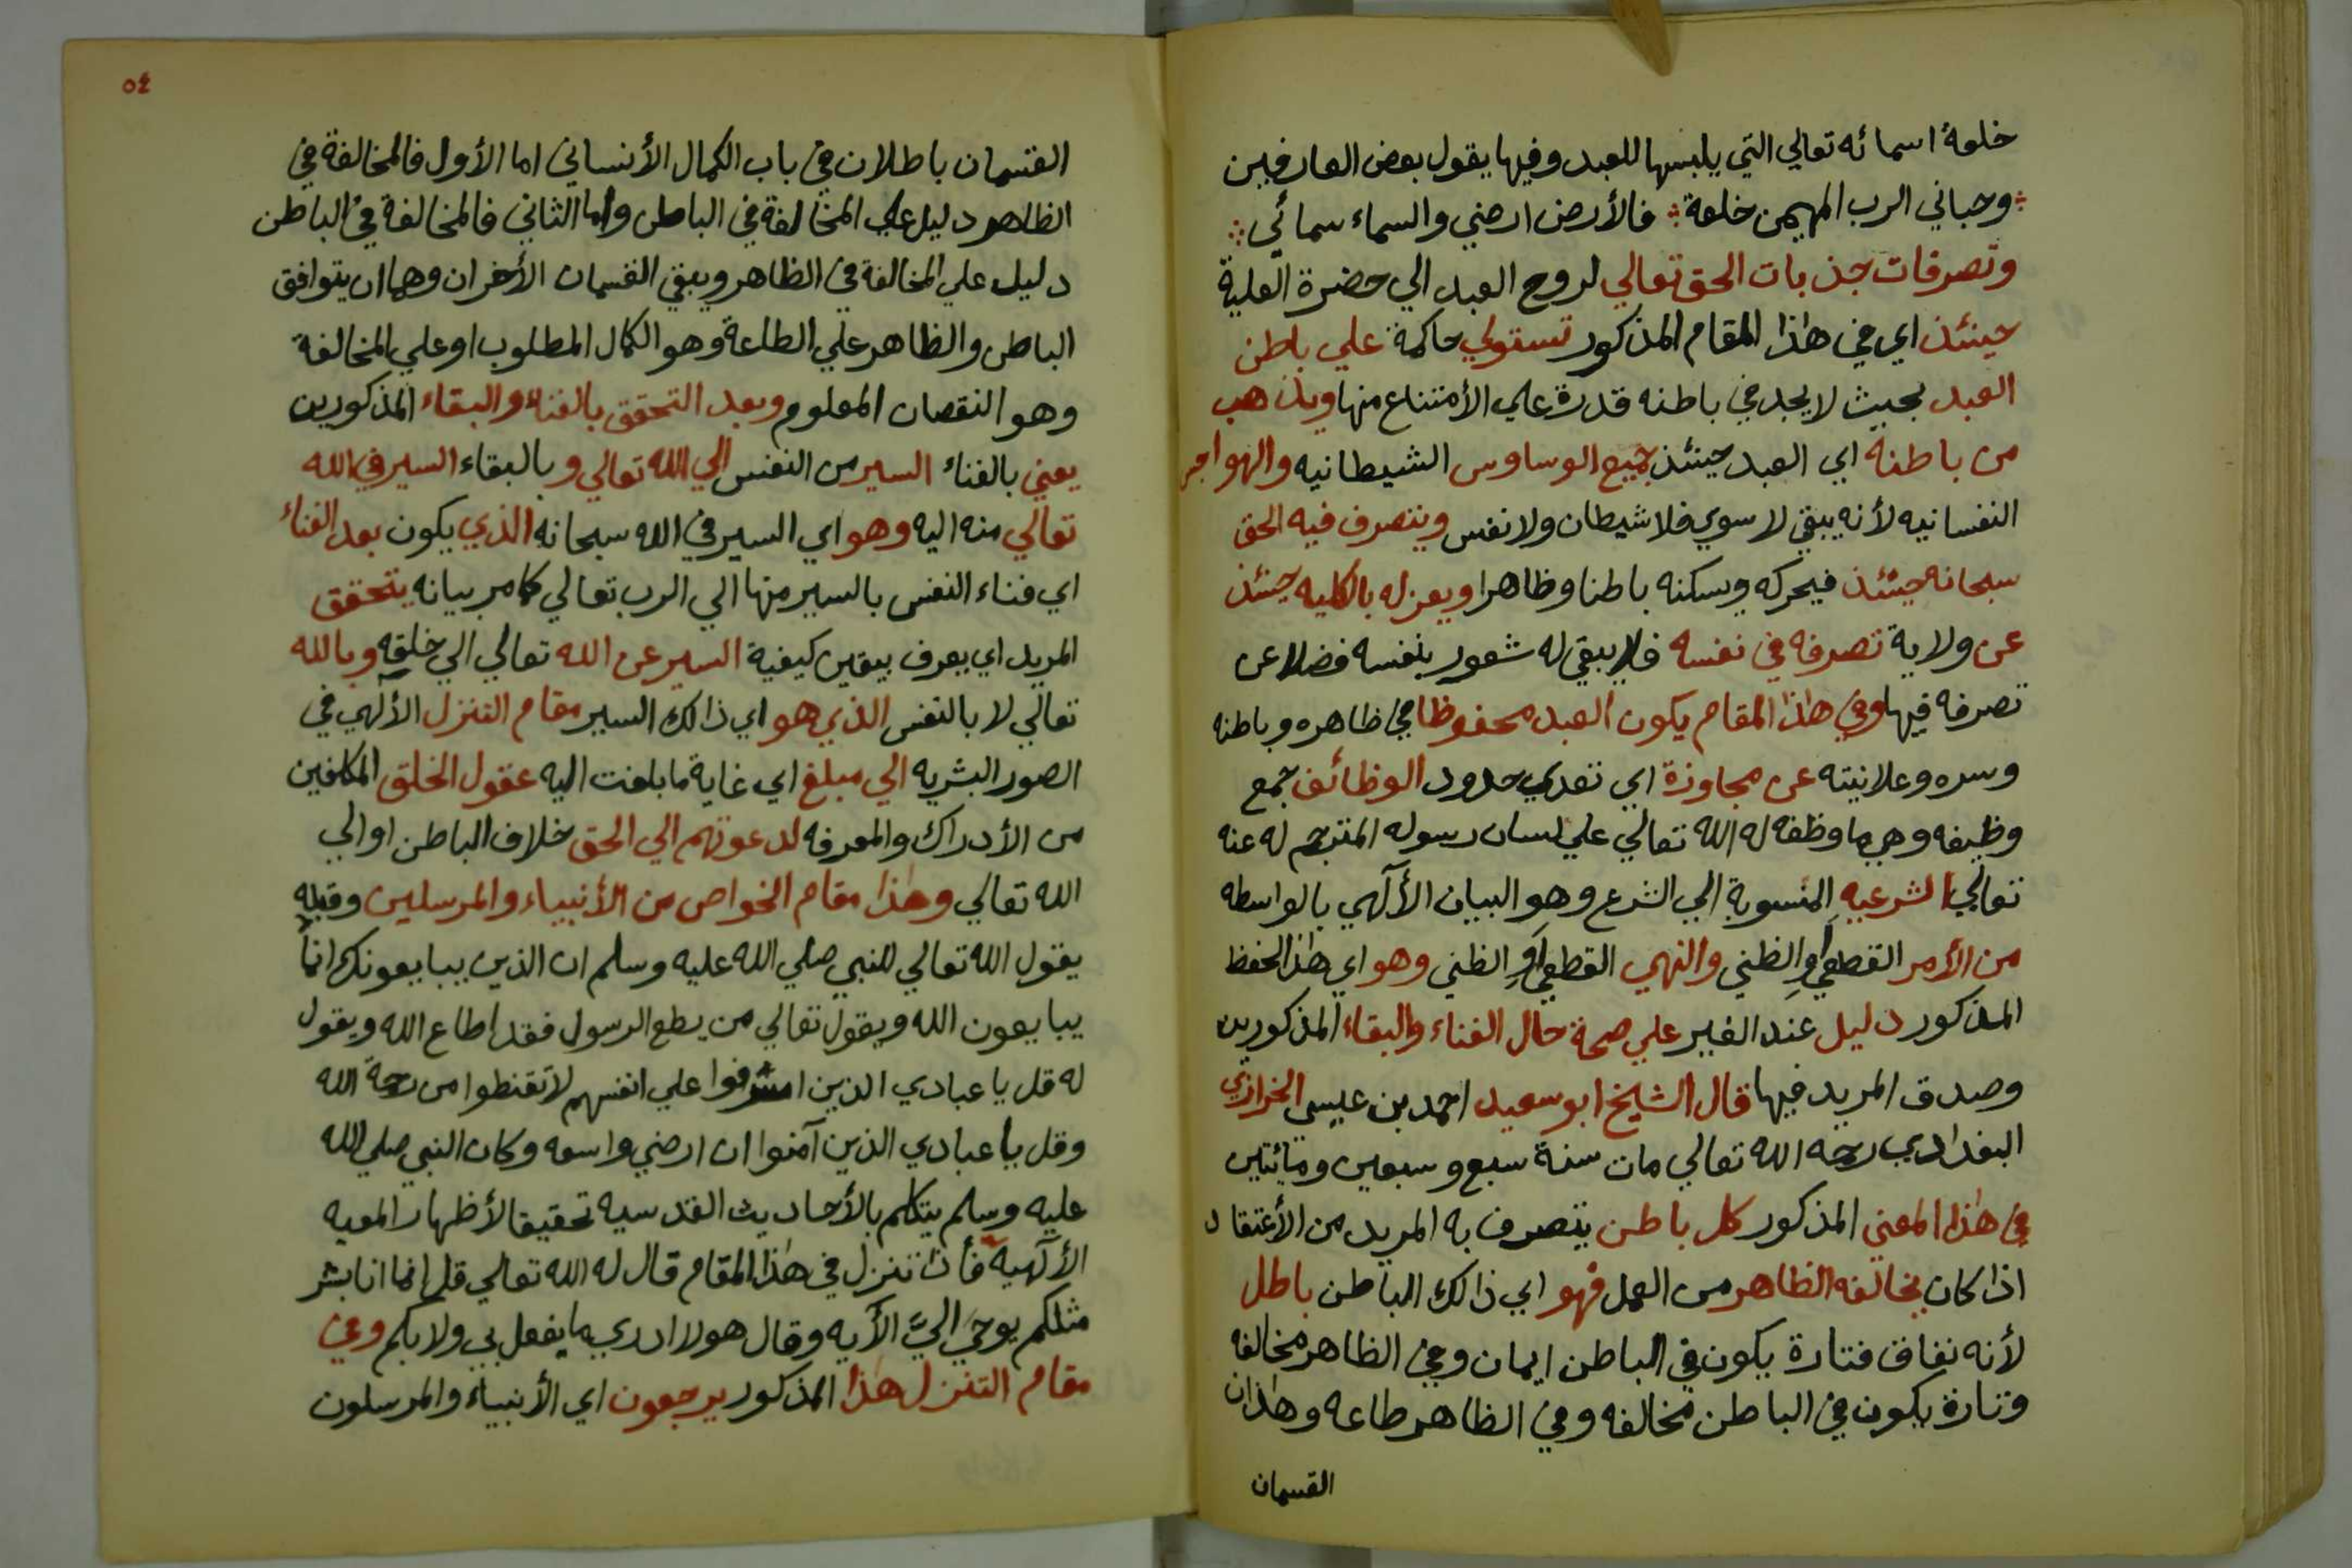 خلعة اسمائه تعالي التي يلبسها للعبد وفيها يقول بعض العارفين
وحباني الرب المهيمن خلعة فالأرض ارضي والسماء سمائي
وتصرفات جذبات الحق تعالي لروح العبد الي حضرة العلية
حينئذ اي في هذا المقام المذكور تستولي حاكمة علي باطن
العبد بحيث لا يجد في باطنه قدرة علي الأمتناع منها ويذهب
من باطنه اي العبد حينئذ جميع الوساوس الشيطانيه والهواجر
النفسانيه لأنه يبقي لا سوي فلا شيطان ولا نفس ويتصرف فيه الحق
سبحانه حينئذ فيحركه ويسكنه باطنا وظاهرا ويعزله بالكليه حينئذ
عن ولاية تصرفه في نفسه فلا يبقي له شعور بنفسه فضلا عن
تصرفه فيها وفي هذا المقام يكون العبد محفوظا في ظاهره وباطنه
وسره وعلانيته عن مجاوزة اي تعدي حدود الوظائف جمع
وظيفه وهي ما وظفه له الله تعالي علي لسان رسوله المترجم له عنه
تعالي الشرعيه المنسوبة الي الشرع وهو البيان الألهي بالواسطه
من الأمر القطعي او الظني والنهي القطعي او الظني وهو اي هذا الحفظ
المذكور دليل عند الغير علي صحة حال الفناء والبقاء المذكورين
وصدق المريد فيها قال الشيخ ابو سعيد احمد بن عيسي الخرازي
البغدادي رحمه الله تعالي مات سنة سبع وسبعين ومائتين
في هذا المعني المذكور كل باطن يتصرف به المريد من الأعتقاد
اذا كان يخالفه الظاهر من العمل فهو اي ذالك الباطن باطل
لأنه نفاق فتارة يكون في الباطن ايمان وفي الظاهر مخالفه
وتارة يكون في الباطن مخالفه وفي الظاهر طاعه وهذان
القسمان
٥٤
القسمان باطلان في باب الكمال الأنساني اما الأول فالمخالفة في
الظاهر دليل علي المخالفة في الباطن واما الثاني فالمخالفة في الباطن
دليل علي المخالفة في الظاهر ويبقي القسمان الأخران وهما ان يتوافق
الباطن والظاهر علي الطاعة وهو الكمال المطلوب او علي المخالفة
وهو النقصان المعلوم وبعد التحقق بالفناء والبقاء المذكورين
يعني بالفناء السير من النفس الي الله تعالي وبالبقاء السير في الله
تعالي منه اليه وهو اي السير في الله سبحانه الذي يكون بعد الفناء
اي فناء النفس بالسير منها الي الرب تعالي كما مر بيانه يتحقق
المريد اي يعرف بيقين كيفية السير عن الله تعالي الي خلقه وبالله
تعالي لا بالنفس الذي هو اي ذالك السير مقام التنزل الألهي في
الصور البشريه الي مبلغ اي غاية ما بلغت اليه عقول الخلق المكلفين
من الأدراك والمعرفه لدعوتهم الي الحق خلاف الباطن او الي
الله تعالي وهذا مقام الخواص من الأنبياء والمرسلين وقبله
يقول الله تعالي للنبي صلي الله عليه وسلم ان الذين يبايعونك انما
يبايعون الله ويقول تعالي من يطع الرسول فقد اطاع الله ويقول
له قل يا عبادي الذين اسرفوا علي انفسهم لا تقنطوا من رحمة الله
وقل يا عبادي الذين آمنوا ان ارضي واسعه وكان النبي صلي الله
عليه وسلم يتكلم بالأحاديث القدسيه تحقيقا لأظهار المعيه
الألهيه فأذا تنزل في هذا المقام قال له الله تعالي قل انما انا بشر
مثلكم يوحي اليَّ الأيه وقال هو لا ادري ما يفعل بي ولا بكم وفي
مقام التنزل هذا المذكور يرجعون اي الأنبياء والمرسلون